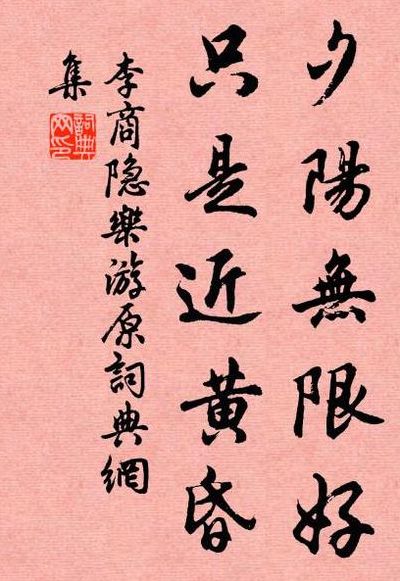 夕陽無限好
只是近黃昏
李商隐樂游原詞典網
集
詞典
网印